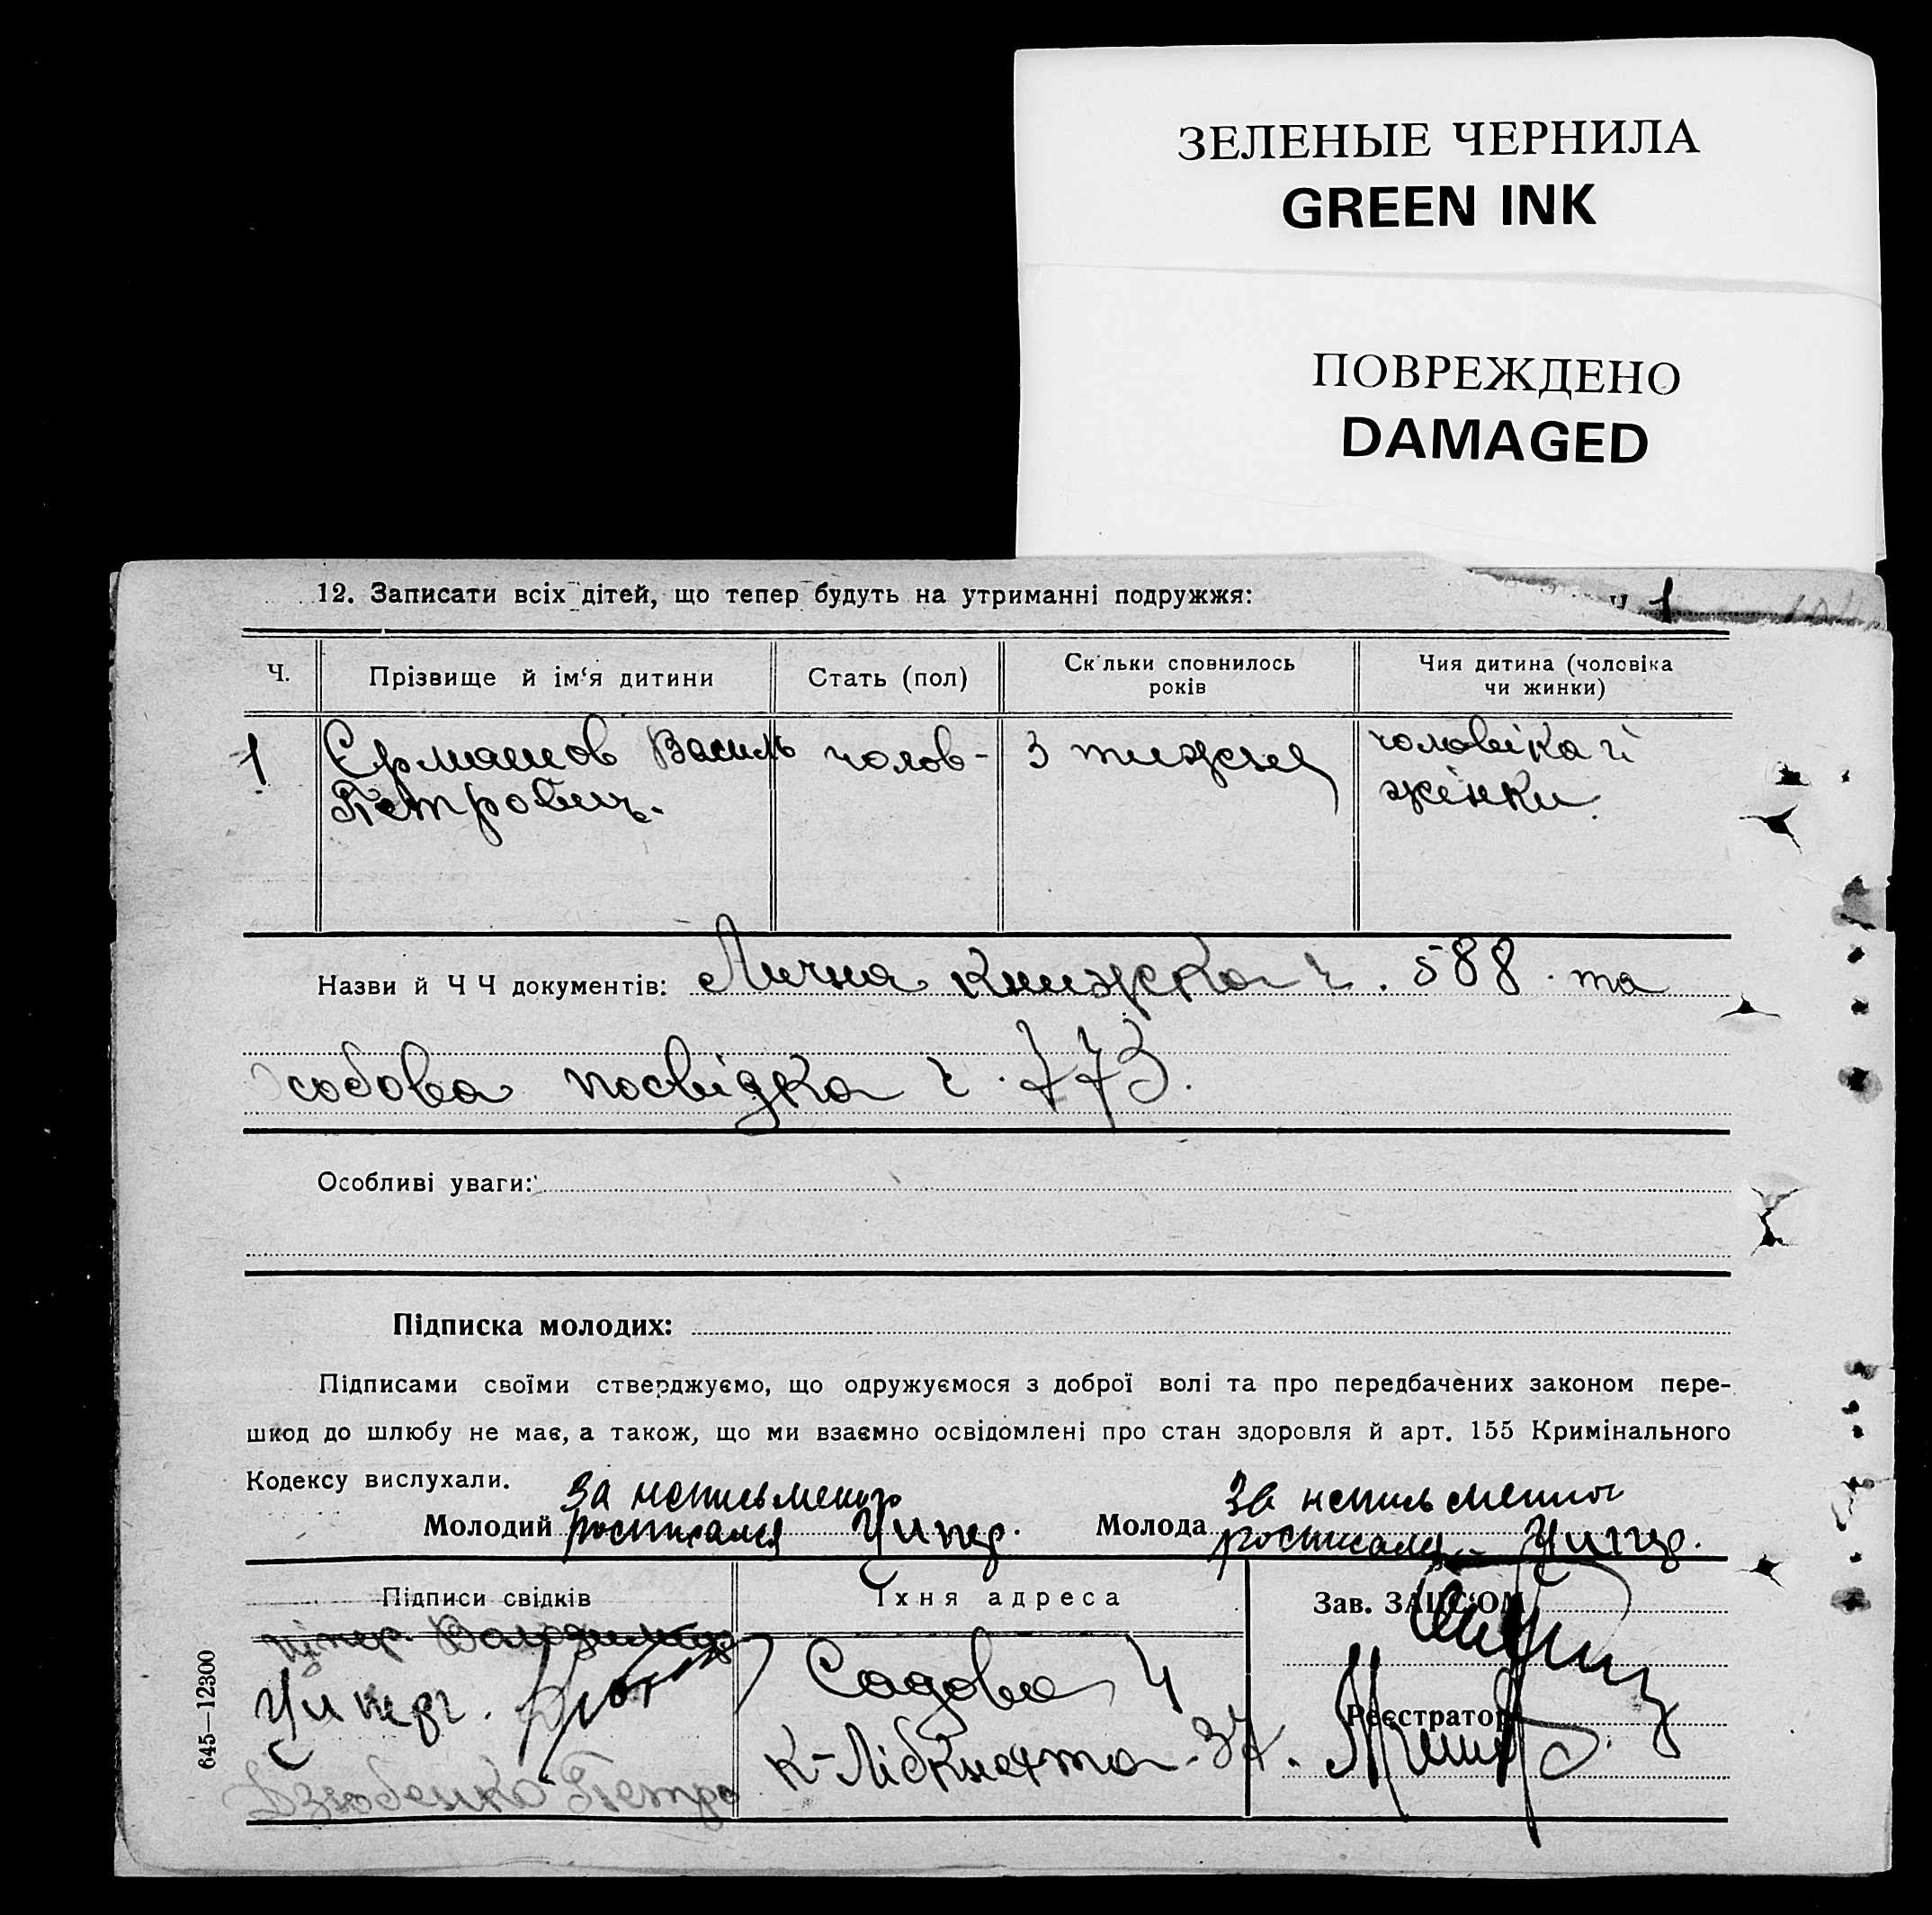 ЗЕЛЕНЫЕ ЧЕРНИЛА
GREEN INK
ПОВРЕЖДЕНО
DAMAGED
12. Записати всіх дітей, що тепер будуть на утриманні подружжя:
1
Ч.
Прізвище й ім‘я дитини
Стать (пол)
Ск льки сповнилось
років
Чия дитина (чоловіка
чи жинки)
1
Єрмашов Василь
Петрович.
чолов-
3 тижня
чоловіка й
жінки.
Назви й Ч Ч документів: Лична книжка ч. 588 та
Особова посвідка ч. 773.
Особливі уваги:
Підписка молодих:
Підписами своїми стверджуємо, що одружуємося з доброї волі та про передбачених законом пере-
шкод до шлюбу не має, а також, що ми взаємно освідомлені про стан здоровля й арт. 155 Кримінального
Кодексу вислухали.
За неписьменого
Молодий росписався
За неписьменна
Молода росписався
Підписи свідків
Їхня адреса
Зав. ЗАГС‘ОМ
Володимир
Садова 4
Реєстратор
К-Лібкнехта-37.
Дзюбенко Петро
645—12300